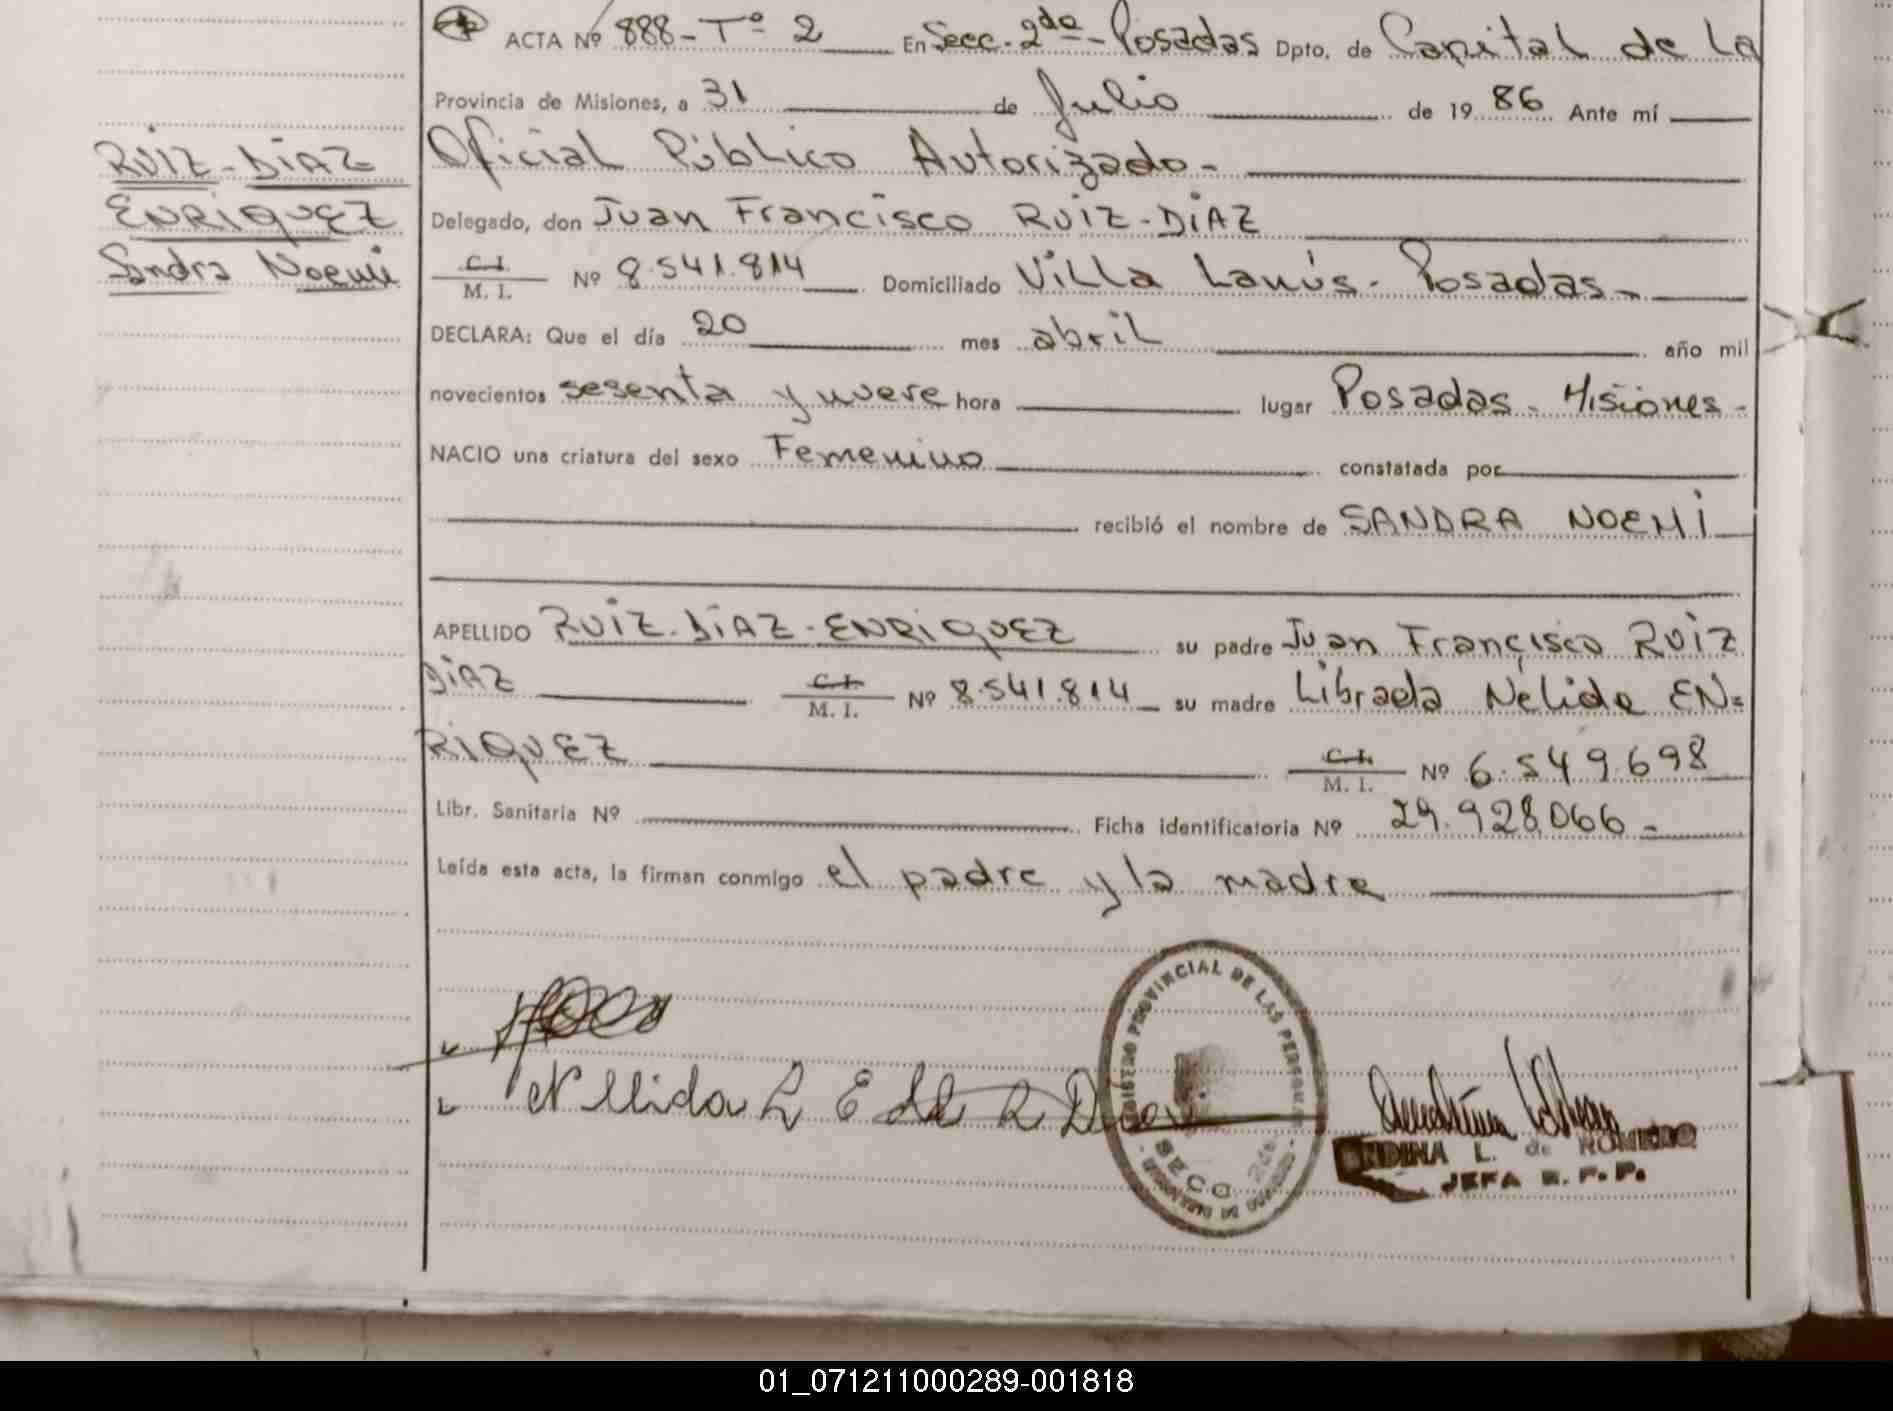 ACTA Nº 888-Tº 2 En Secc. 2da - Posadas Dpto. de Capital de La
Provincia de Misiones, a 31 de Julio de 1986 Ante mí
Oficial Público Autorizado-
RUIZ-DÍAZ
ENRIQUEZ
Sandra Noemi
Delegado, don Juan Francisco RUIZ-DÍAZ
C.I.
M. I. Nº 8.541.814 Domiciliado Villa Lanús- Posadas-
DECLARA: Que el día 20 mes abril año mil
novecientos sesenta y nueve hora lugar Posadas- Misiones-
NACIO una criatura del sexo Femenino constatada por
recibió el nombre de SANDRA NOEMI
APELLIDO RUIZ-DÍAZ-ENRIQUEZ su padre Juan Francisco RUIZ
DÍAZ C.I.
M. I. Nº 8.541.814 su madre Librada Nélida EN=
RIQUEZ C.I.
M. I. Nº 6.549.698
Libr. Sanitaria Nº Ficha identificatoria Nº 29.928.066-
Leída esta acta, la firman conmigo el padre y la madre
PROVINCIAL DE LAS PERSONAS
SECC.
Nellida L E de R Diaz
L. de ROMERO
JEFA R.P.P.
01_071211000289-001818